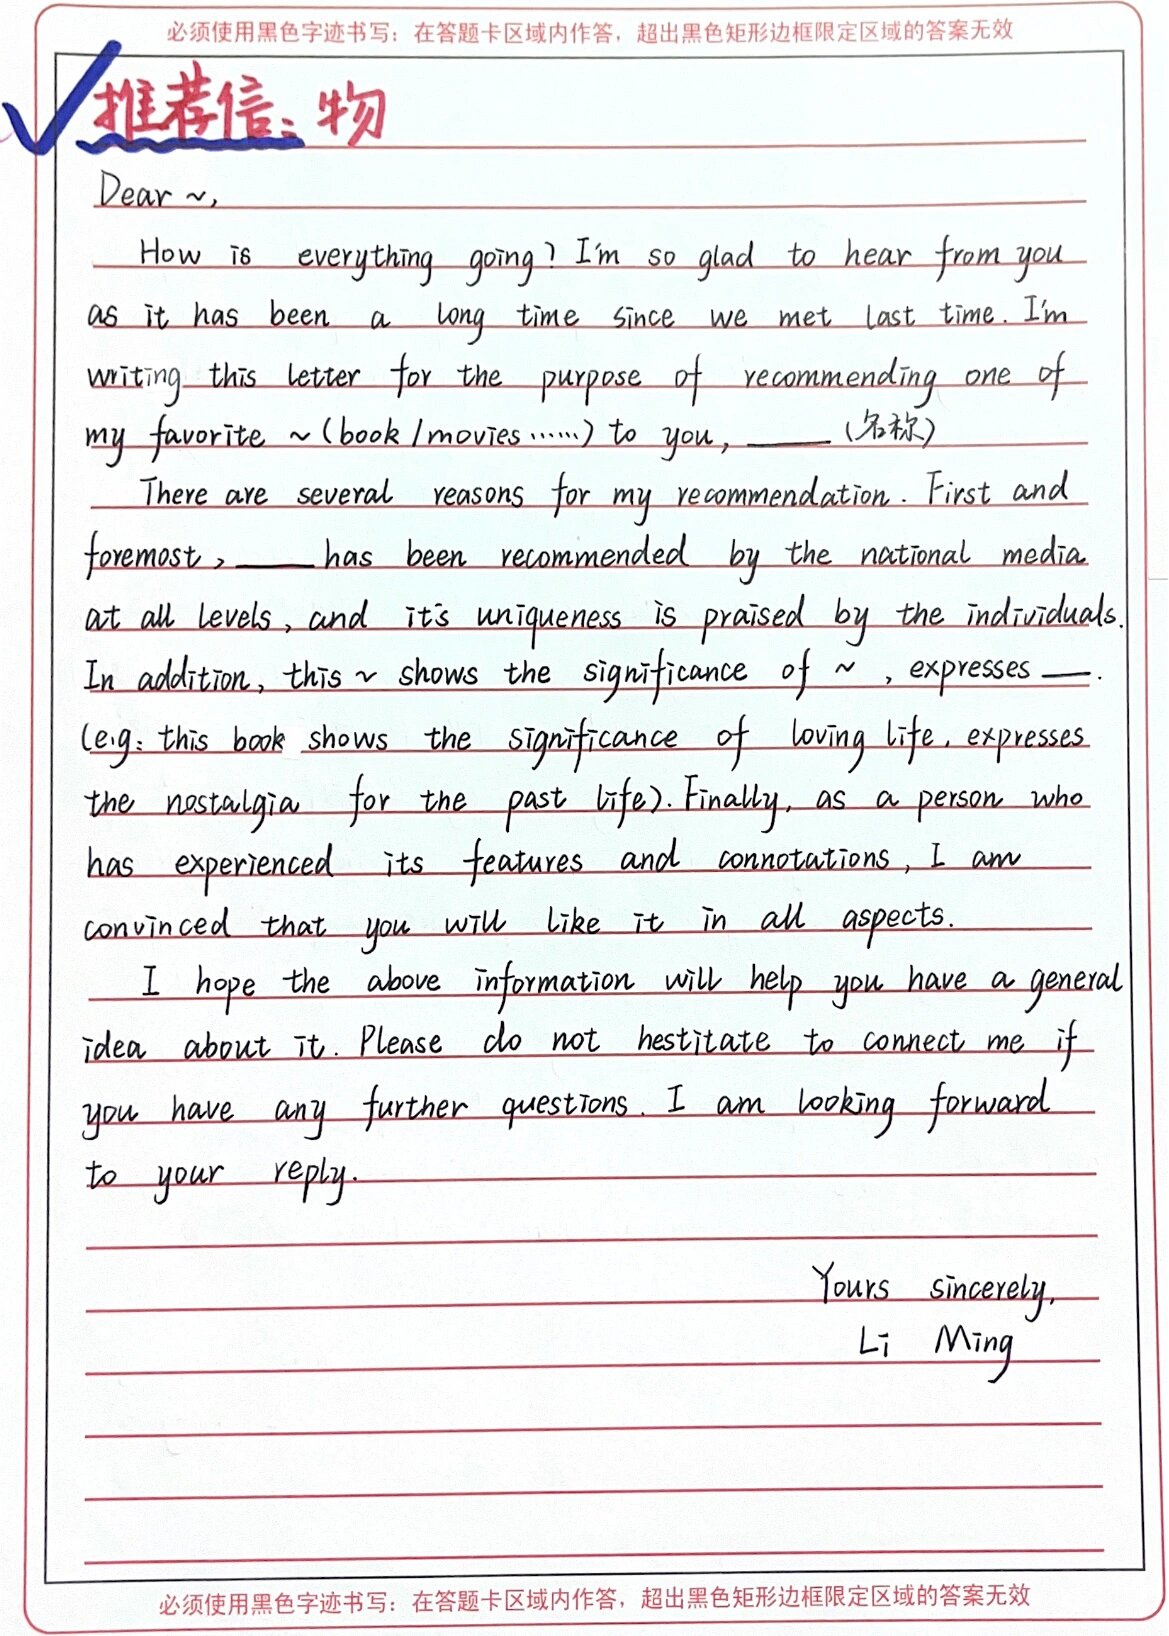 必须使用黑色字迹书写：在答题卡区域内作答，超出黑色矩形边框限定区域的答案无效
推荐信：物
Dear ~,
How is everything going? I'm so glad to hear from you
as it has been a long time since we met last time. I'm
writing this letter for the purpose of recommending one of
my favorite ~ (book / movies ……) to you, ____ (名称)
There are several reasons for my recommendation. First and
foremost, ____ has been recommended by the national media
at all levels, and it's uniqueness is praised by the individuals.
In addition, this ~ shows the significance of ~ , expresses __.
(e.g: this book shows the significance of loving life, expresses
the nostalgia for the past life). Finally, as a person who
has experienced its features and connotations, I am
convinced that you will like it in all aspects.
I hope the above information will help you have a general
idea about it. Please do not hestitate to connect me if
you have any further questions. I am looking forward
to your reply.
Yours sincerely,
Li Ming
必须使用黑色字迹书写：在答题卡区域内作答，超出黑色矩形边框限定区域的答案无效